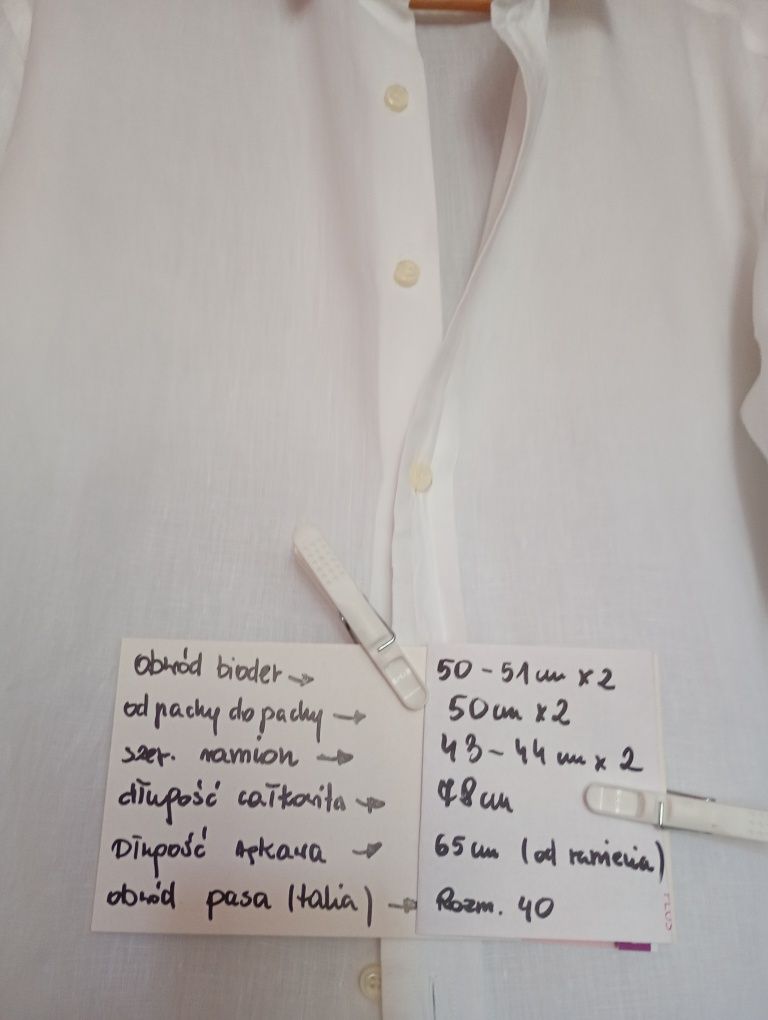 obwód bioder → 50 - 51 cm x 2
od pachy do pachy → 50 cm x 2
szer. ramion → 43 - 44 cm x 2
długość całkowita → 78 cm
Długość rękawa → 65 cm (od ramienia)
obwód pasa (talia) → Rozm. 40
PLUS